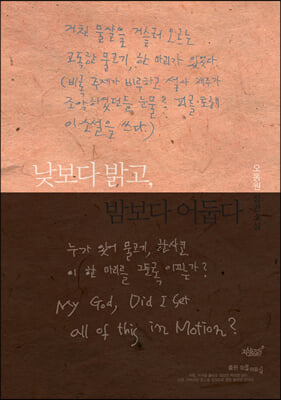 거친 물살을 거슬러 오르는
고독한 물고기, 한 마리가 있었다.
(비록 주제가 비루하고 설사 재주가
조악하였던들, 눈물로, 피를 토해
이 소설을 쓰다.)
낮보다 밝고,
밤보다 어둡다
오동원 장편소설
누가 있어 물고기, 한사코
이 한 마리를 그토록 어찔까?
My God, Did I Set
all of this in Motion?